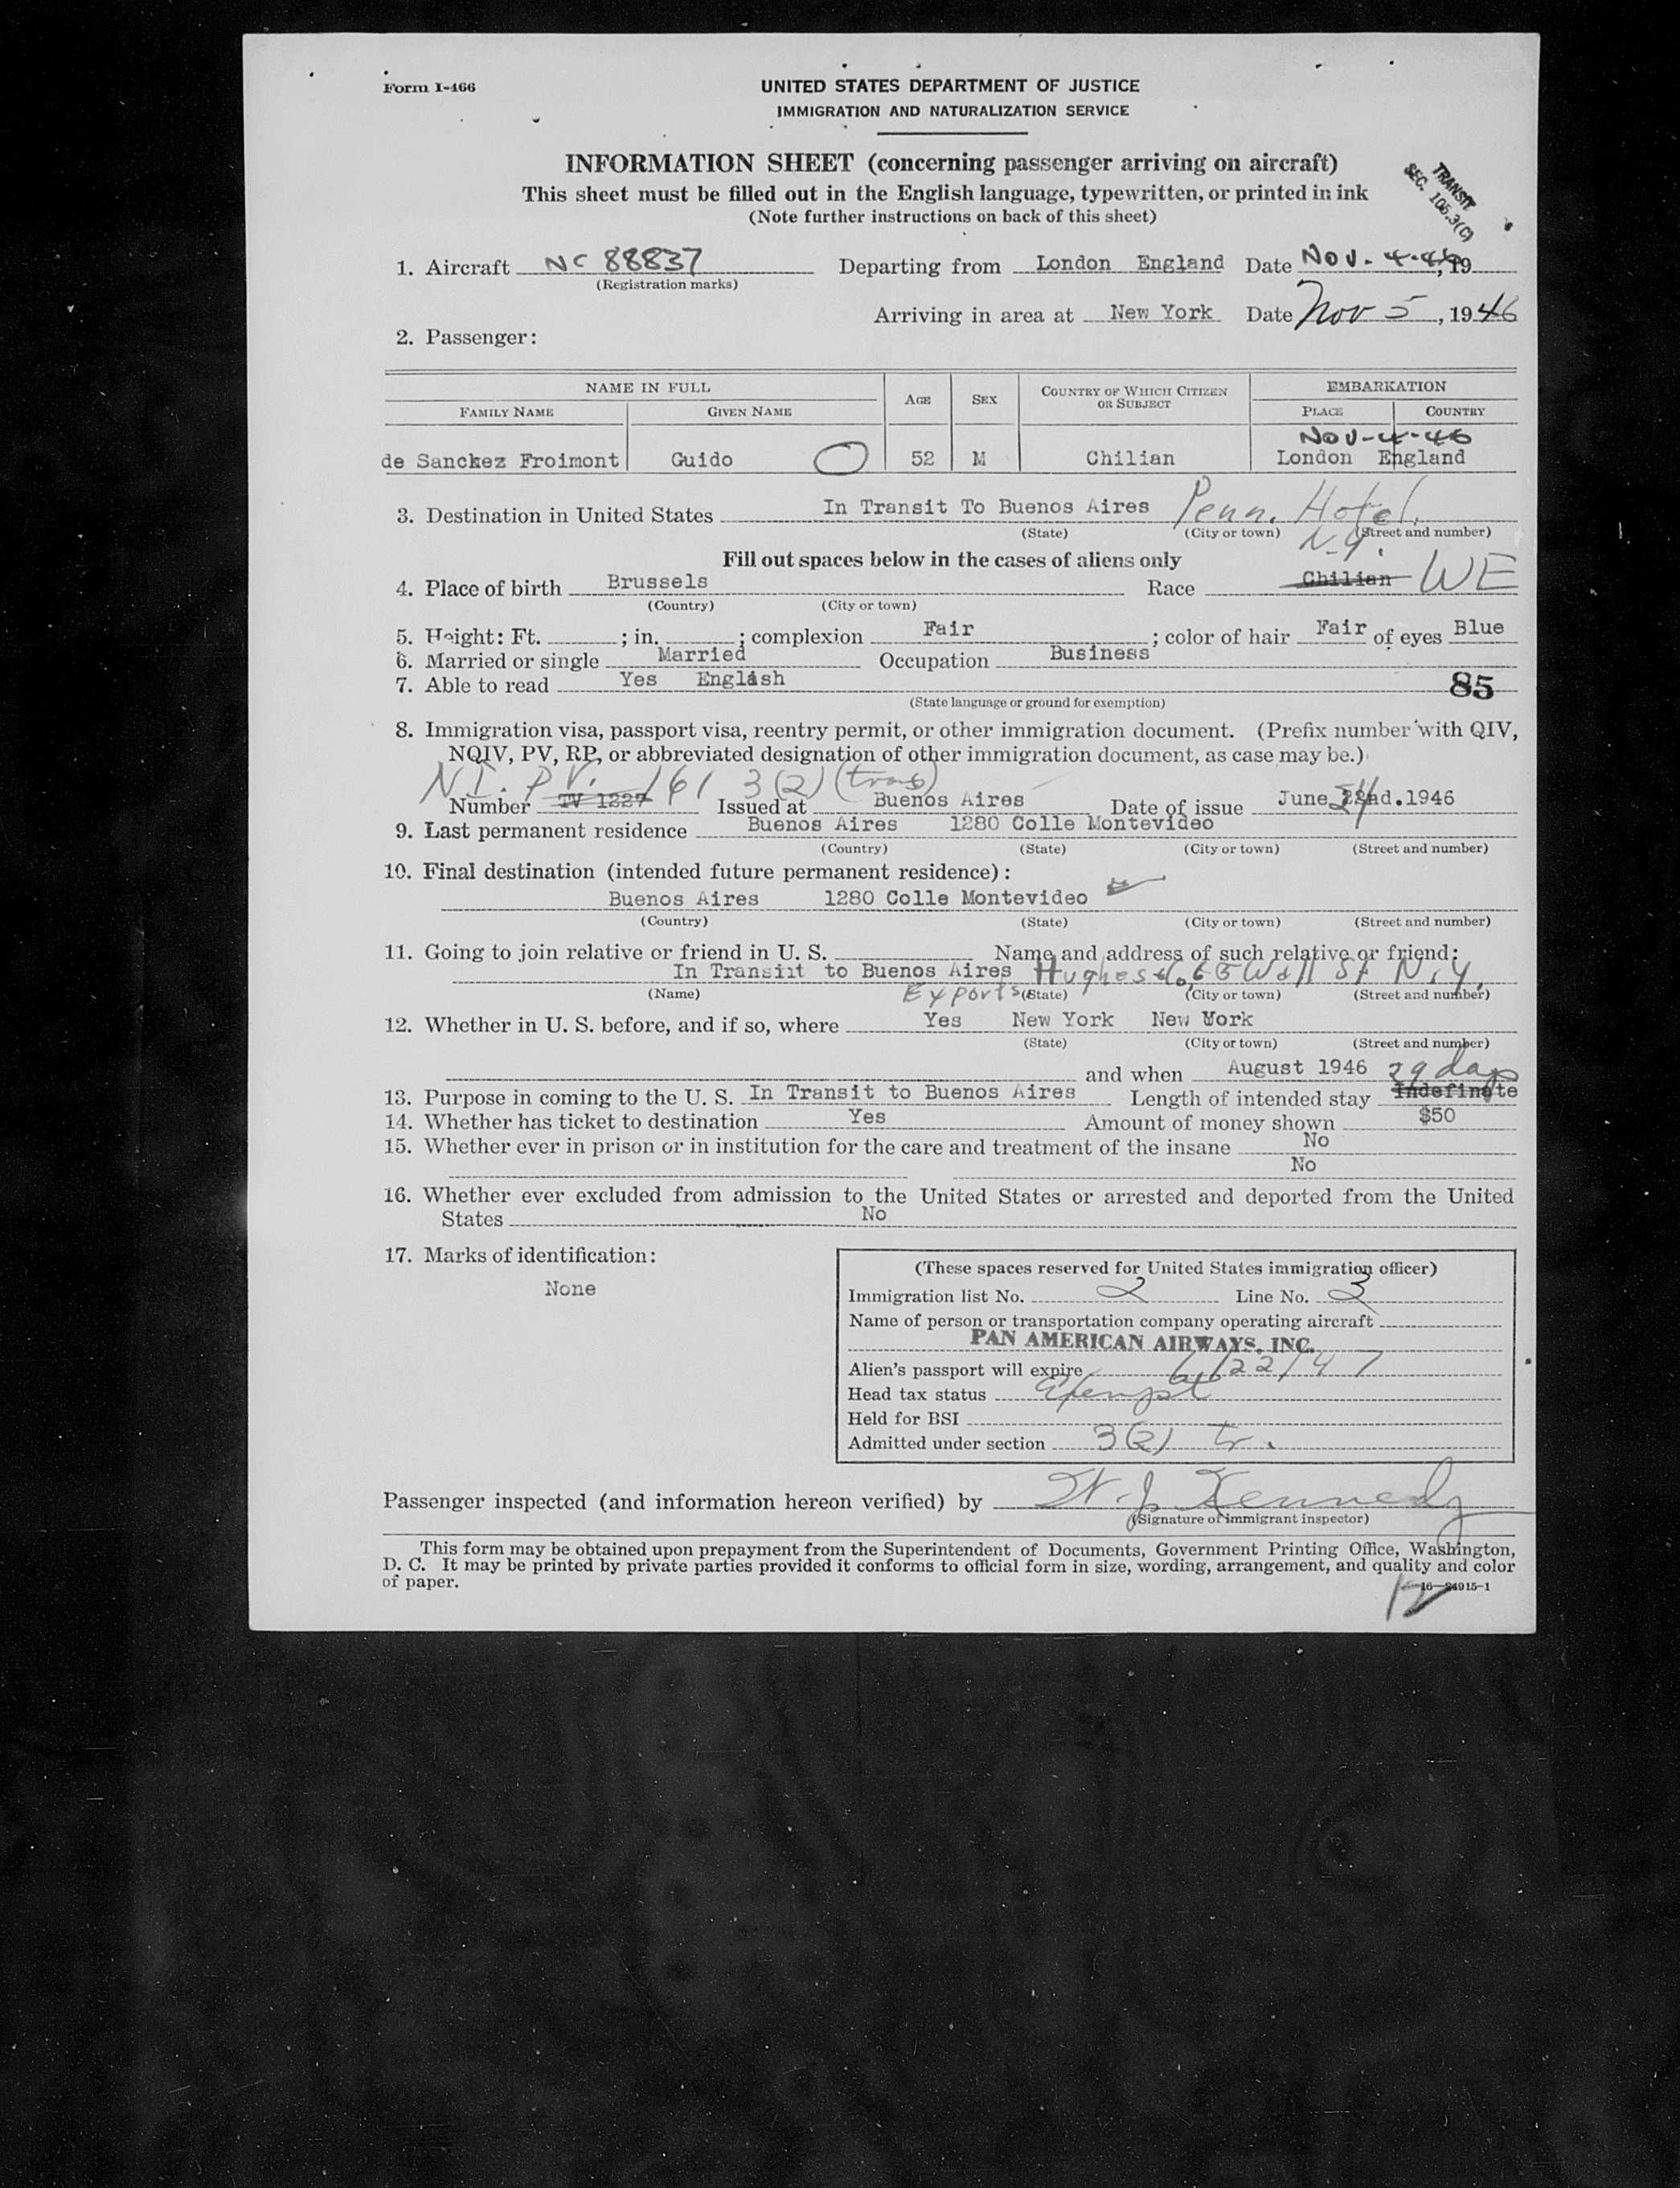 Form I-466
UNITED STATES DEPARTMENT OF JUSTICE
IMMIGRATION AND NATURALIZATION SERVICE
INFORMATION SHEET (concerning passenger arriving on aircraft)
This sheet must be filled out in the English language, typewritten, or printed in ink
(Note further instructions on back of this sheet)
TRANSIT
SEC. 105.3(C)
1. Aircraft NC 88837 Departing from London England Date Nov. 4-46, 19
(Registration marks)
Arriving in area at New York Date Nov 5, 1946
2. Passenger:
NAME IN FULL AGE SEX COUNTRY OF WHICH CITIZEN OR SUBJECT EMBARKATION
FAMILY NAME GIVEN NAME PLACE COUNTRY
NOV-4-46
de Sanckez Froimont Guido 52 M Chilian London England
3. Destination in United States In Transit To Buenos Aires Penn. Hotel.
(State) (City or town) (Street and number)
N.Y.
Fill out spaces below in the cases of aliens only
4. Place of birth Brussels Race Chilian WE
(Country) (City or town)
5. Height: Ft. ; in. ; complexion Fair ; color of hair Fair of eyes Blue
6. Married or single Married Occupation Business
7. Able to read Yes English 85
(State language or ground for exemption)
8. Immigration visa, passport visa, reentry permit, or other immigration document. (Prefix number with QIV,
NQIV, PV, RP, or abbreviated designation of other immigration document, as case may be.)
N.I. P.V. 161 3(2) (trans)
Number TV 1227 Issued at Buenos Aires Date of issue June 22nd.1946
9. Last permanent residence Buenos Aires 1280 Colle Montevideo
(Country) (State) (City or town) (Street and number)
10. Final destination (intended future permanent residence):
Buenos Aires 1280 Colle Montevideo
(Country) (State) (City or town) (Street and number)
11. Going to join relative or friend in U. S. Name and address of such relative or friend:
In Transit to Buenos Aires Hughes Co, 65 Wall St N.Y.
(Name) Exports (State) (City or town) (Street and number)
12. Whether in U. S. before, and if so, where Yes New York New York
(State) (City or town) (Street and number)
and when August 1946 29 days
13. Purpose in coming to the U. S. In Transit to Buenos Aires Length of intended stay Indefinate
14. Whether has ticket to destination Yes Amount of money shown $50
15. Whether ever in prison or in institution for the care and treatment of the insane No
No
16. Whether ever excluded from admission to the United States or arrested and deported from the United
States No
17. Marks of identification:
None
(These spaces reserved for United States immigration officer)
Immigration list No. 2 Line No. 3
Name of person or transportation company operating aircraft
PAN AMERICAN AIRWAYS, INC.
Alien's passport will expire 6/22/47
Head tax status Exempt
Held for BSI
Admitted under section 3(2) tr.
Passenger inspected (and information hereon verified) by W. J. Kennedy
(Signature of immigrant inspector)
This form may be obtained upon prepayment from the Superintendent of Documents, Government Printing Office, Washington,
D. C. It may be printed by private parties provided it conforms to official form in size, wording, arrangement, and quality and color
of paper.
16—24915-1
12